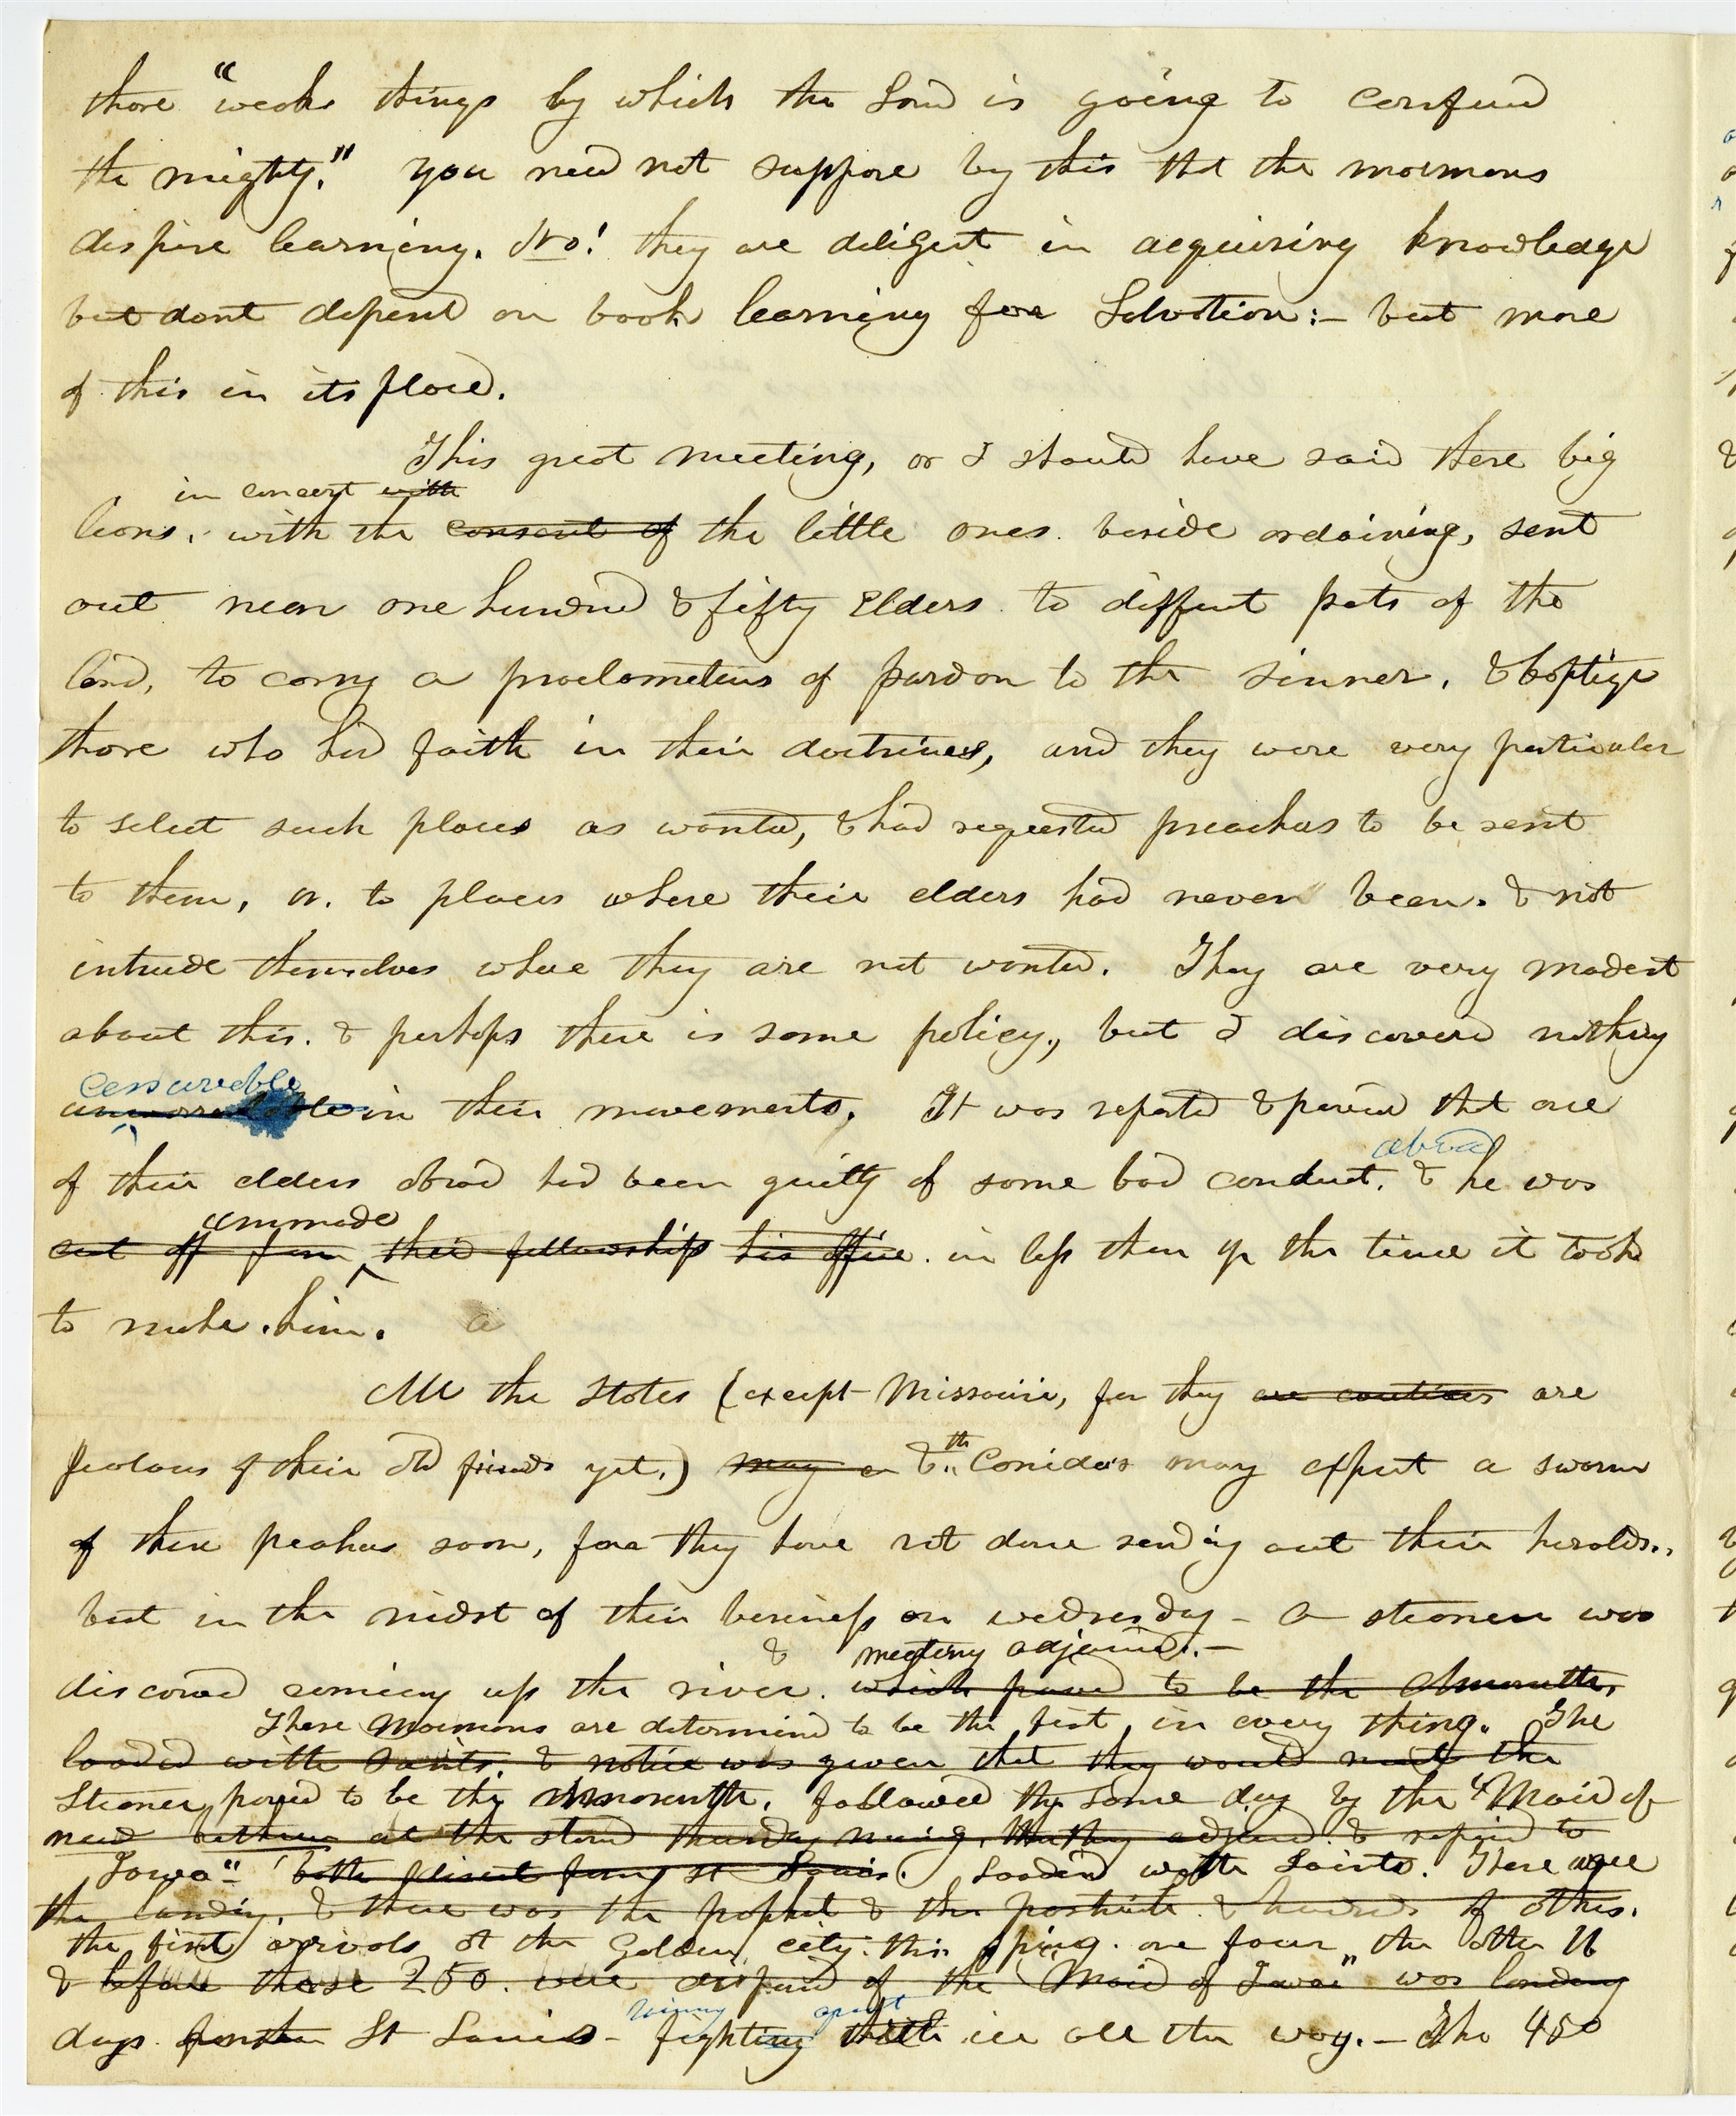 those "weake things by which the Lord is going to confund
the mighty." you need not suppose by this tht the mormons
despise learning. No! they are diligent in acquiring knowledge
but dont depend on book learning for Salvation:- but more
of this in its place.
This great meeting, or I should have said these big
in concert with
lions, with the consent of the little ones. beside ordaining, sent
out near one hundred & fifty Elders to diffrent parts of the
land, to carry a proclamation of pardon to the sinner, & baptize
those who had faith in their doctrines, and they were very particular
to select such places as wanted, & had requested preachers to be sent
to them, or to places where their elders had never been. & not
intrude themselves where they are not wanted. They are very modest
about this. & perhaps there is some policy, but I discovered nothing
Censureable
in their movements. It was reported & proved tht one
abroad
of their elders abroad had been guilty of some bad conduct. & he was
unmade
cut off from their fellowship his office. in less than ½ the time it took
to make him. a
All the States (except Missouri, for they are cautious are
jealous of their old friends yet.) may & the Canidas may expect a swarm
of these preachers soon, for they have not done sending out their heralds.
but in the midst of their business on wednesday - a steamer was
& meeting adjourned.-
discovered coming up the river. which proved to be the Amaranth,
These Mormons are determined to be the first in every thing. The
loaded with saints. & notice was given that they would meet the
Steamer proved to be the Amaranth. followed the same day by the "Maid of
new at the stand thursday morning, they adjourned. & repaired to
Iowa" both direct from St Louis. Loaded with Saints. These were
the landing, & there was the prophet & the & hundreds of others.
the first arrivals at the Golden city this spring. one four, the other 11
& before these 250. were of the "Maid of Iowa" was landing
days from St Louis - apart
fighting with ice all the way. - The 450